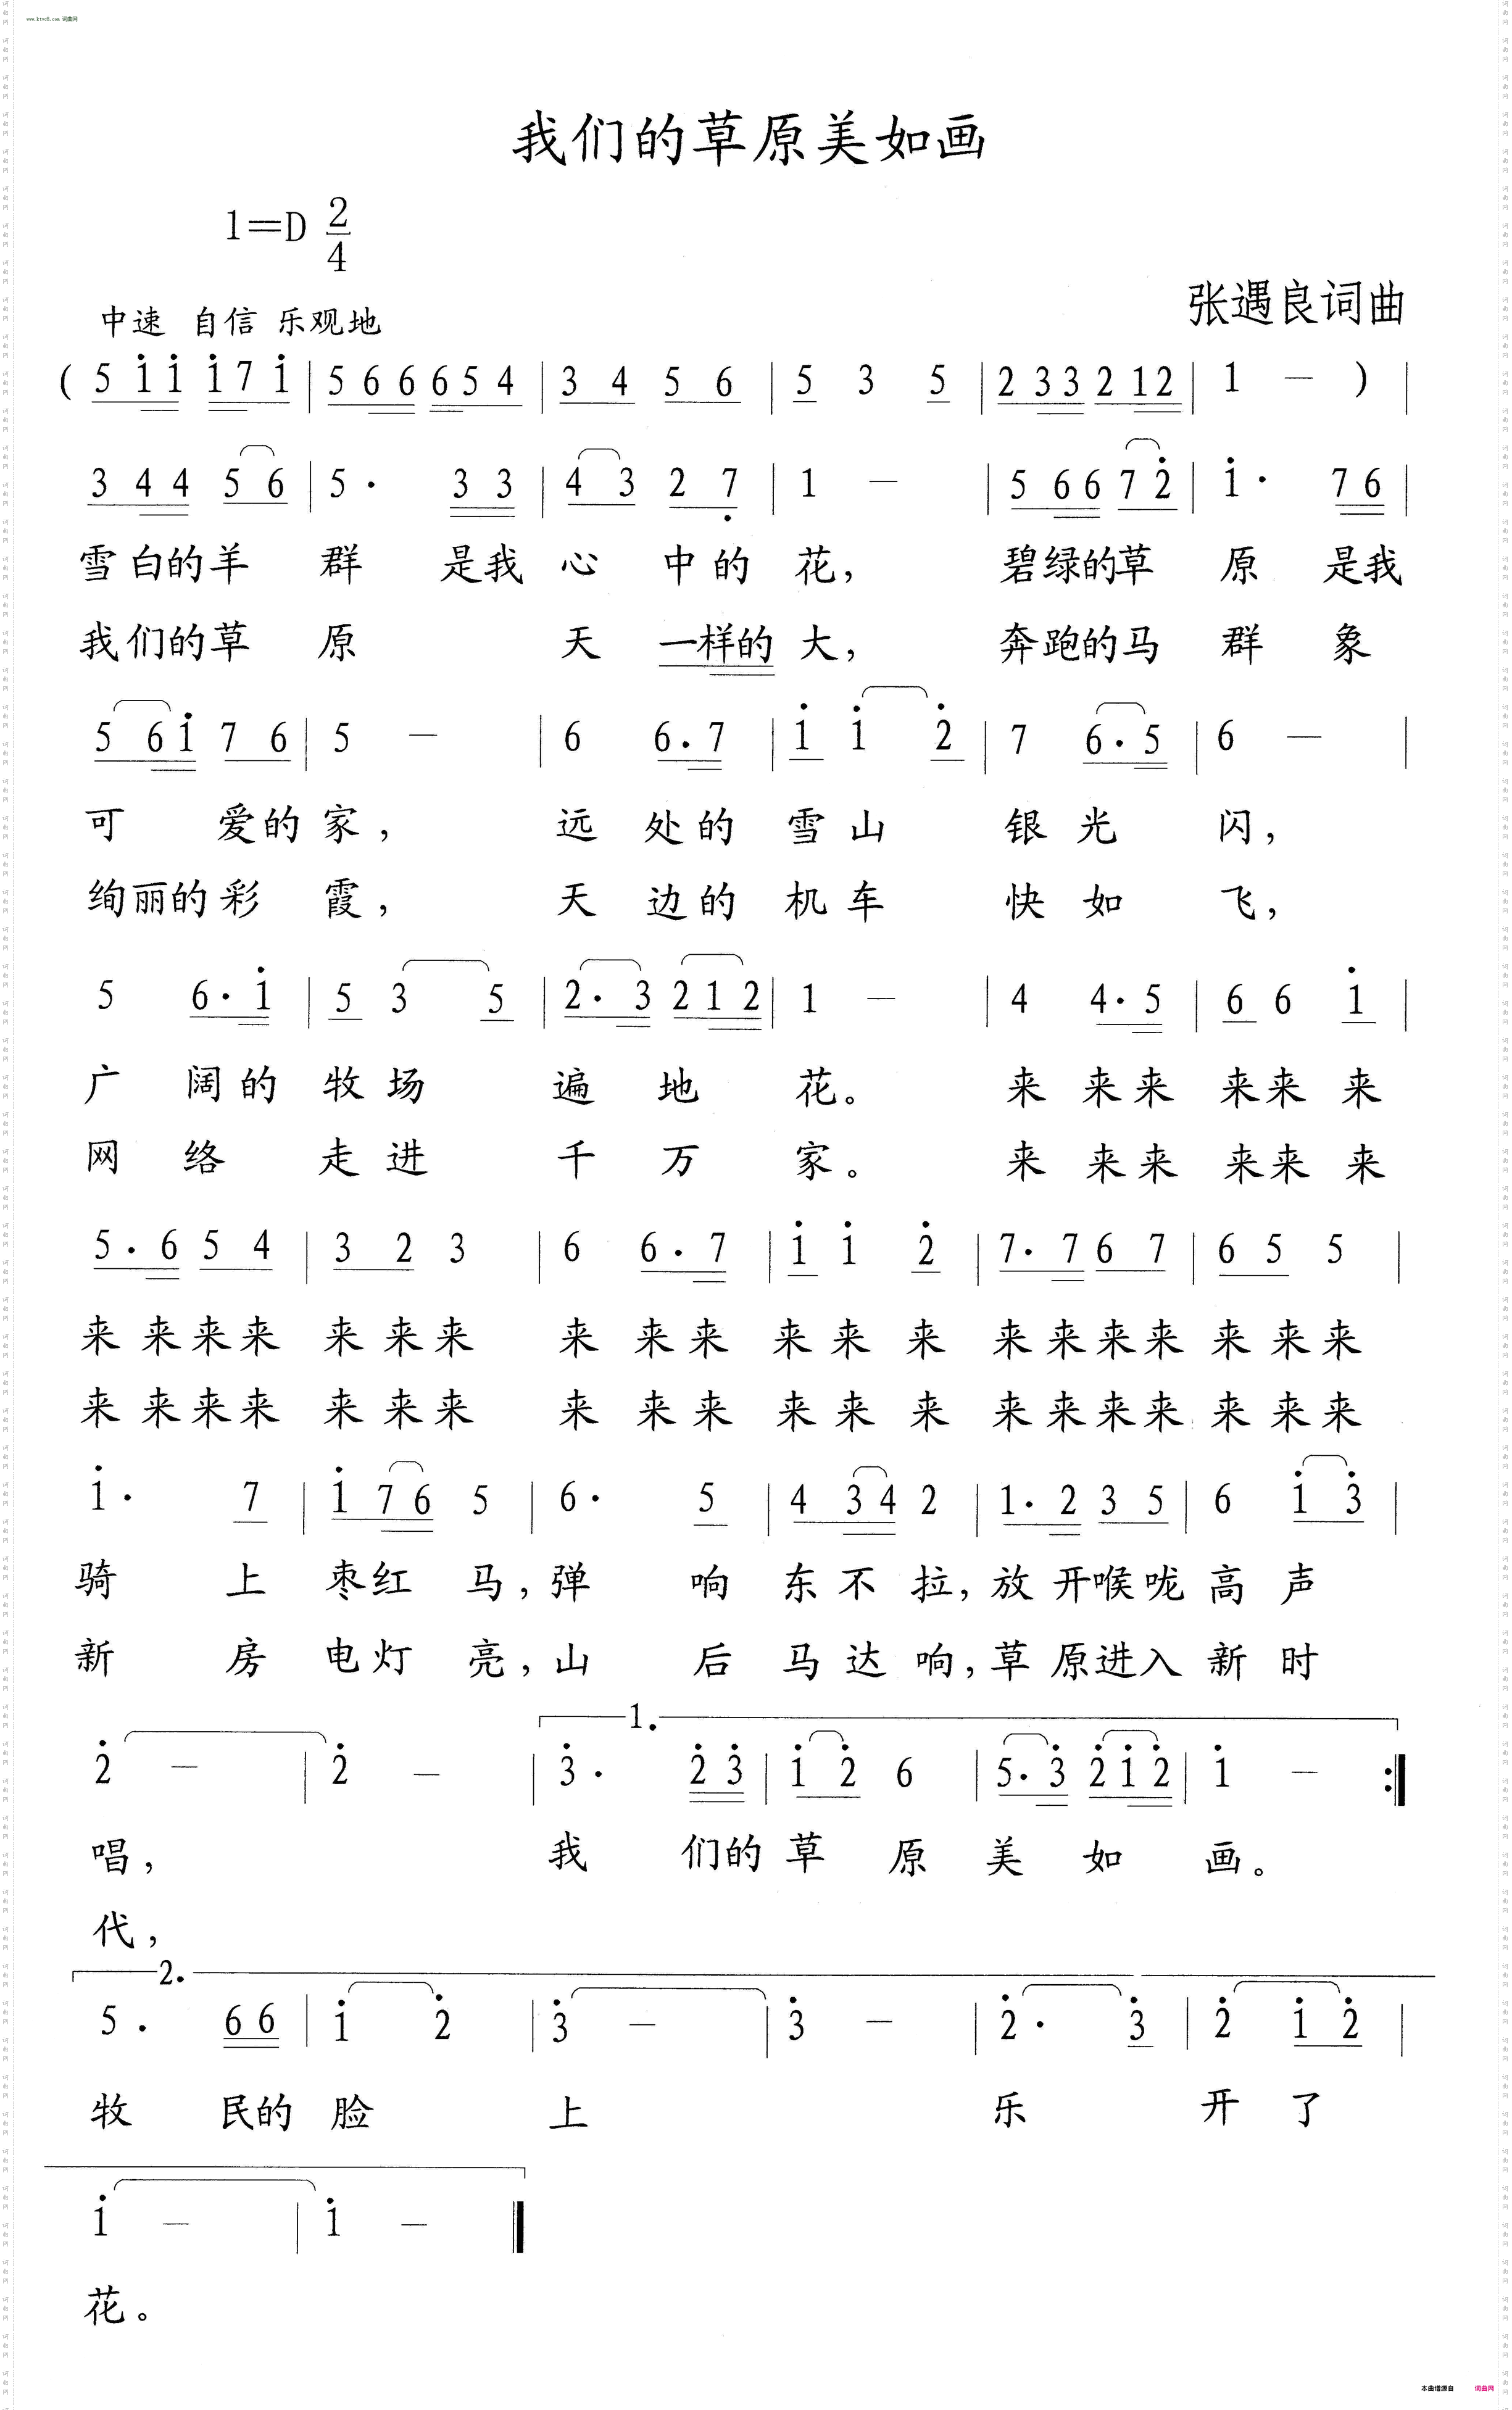 www.ktvc8.com 词曲网
我们的草原美如画
1=D 2/4
中速 自信 乐观地
张遇良词曲
( 5 i i i 7 i | 5 6 6 6 5 4 | 3 4 5 6 | 5 3 5 | 2 3 3 2 1 2 | 1 — ) |
3 4 4 5 6 | 5 · 3 3 | 4 3 2 7̣ | 1 — | 5 6 6 7 2̇ | i · 7 6 |
雪白的羊 群 是我 心 中的 花， 碧绿的草 原 是我
我们的草 原 天 一样的 大， 奔跑的马 群 象
5 6 i 7 6 | 5 — | 6 6 · 7 | i i 2̇ | 7 6 · 5 | 6 — |
可 爱的 家， 远 处的 雪山 银光 闪，
绚丽的彩 霞， 天 边的 机车 快如 飞，
5 6 · i | 5 3 5 | 2 · 3 2 1 2 | 1 — | 4 4 · 5 | 6 6 i |
广 阔的 牧场 遍 地 花。 来 来来 来来 来
网 络 走进 千 万 家。 来 来来 来来 来
5 · 6 5 4 | 3 2 3 | 6 6 · 7 | i i 2̇ | 7 · 7 6 7 | 6 5 5 |
来 来来来 来 来来 来 来来 来 来 来 来来来来 来 来来
来 来来来 来 来来 来 来来 来 来 来 来来来来 来 来来
i · 7 | i 7 6 5 | 6 · 5 | 4 3 4 2 | 1 · 2 3 5 | 6 i 3̇ |
骑 上 枣红 马，弹 响 东不 拉，放 开喉咙 高 声
新 房 电灯 亮，山 后 马达 响，草 原进入 新 时
1.
2̇ — | 2̇ — | 3̇ · 2̇ 3̇ | i 2̇ 6 | 5 · 3̇ 2̇ i 2̇ | i — :|
唱， 我 们的 草 原 美 如 画。
代，
2.
5 · 6 6 | i 2̇ | 3̇ — | 3̇ — | 2̇ · 3̇ | 2̇ i 2̇ |
牧 民的 脸 上 乐 开 了
i — | i — ‖
花。
本曲谱源自 词曲网